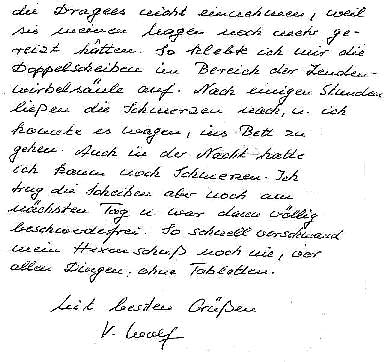 die Dragees nicht einnehmen, weil
sie meinen Magen noch mehr ge-
reizt hätten. So klebte ich mir die
Doppelscheiben im Bereich der Lenden-
wirbelsäule auf. Nach einigen Stunden
ließen die Schmerzen nach, u. ich
konnte es wagen, ins Bett zu
gehen. Auch in der Nacht hatte
ich kaum noch Schmerzen. Ich
trug die Scheiben aber noch am
nächsten Tag u. war dann völlig
beschwerdefrei. So schnell verschwand
mein Hexenschuß noch nie, vor
allen Dingen: ohne Tabletten.
Mit besten Grüßen
V. Wolf